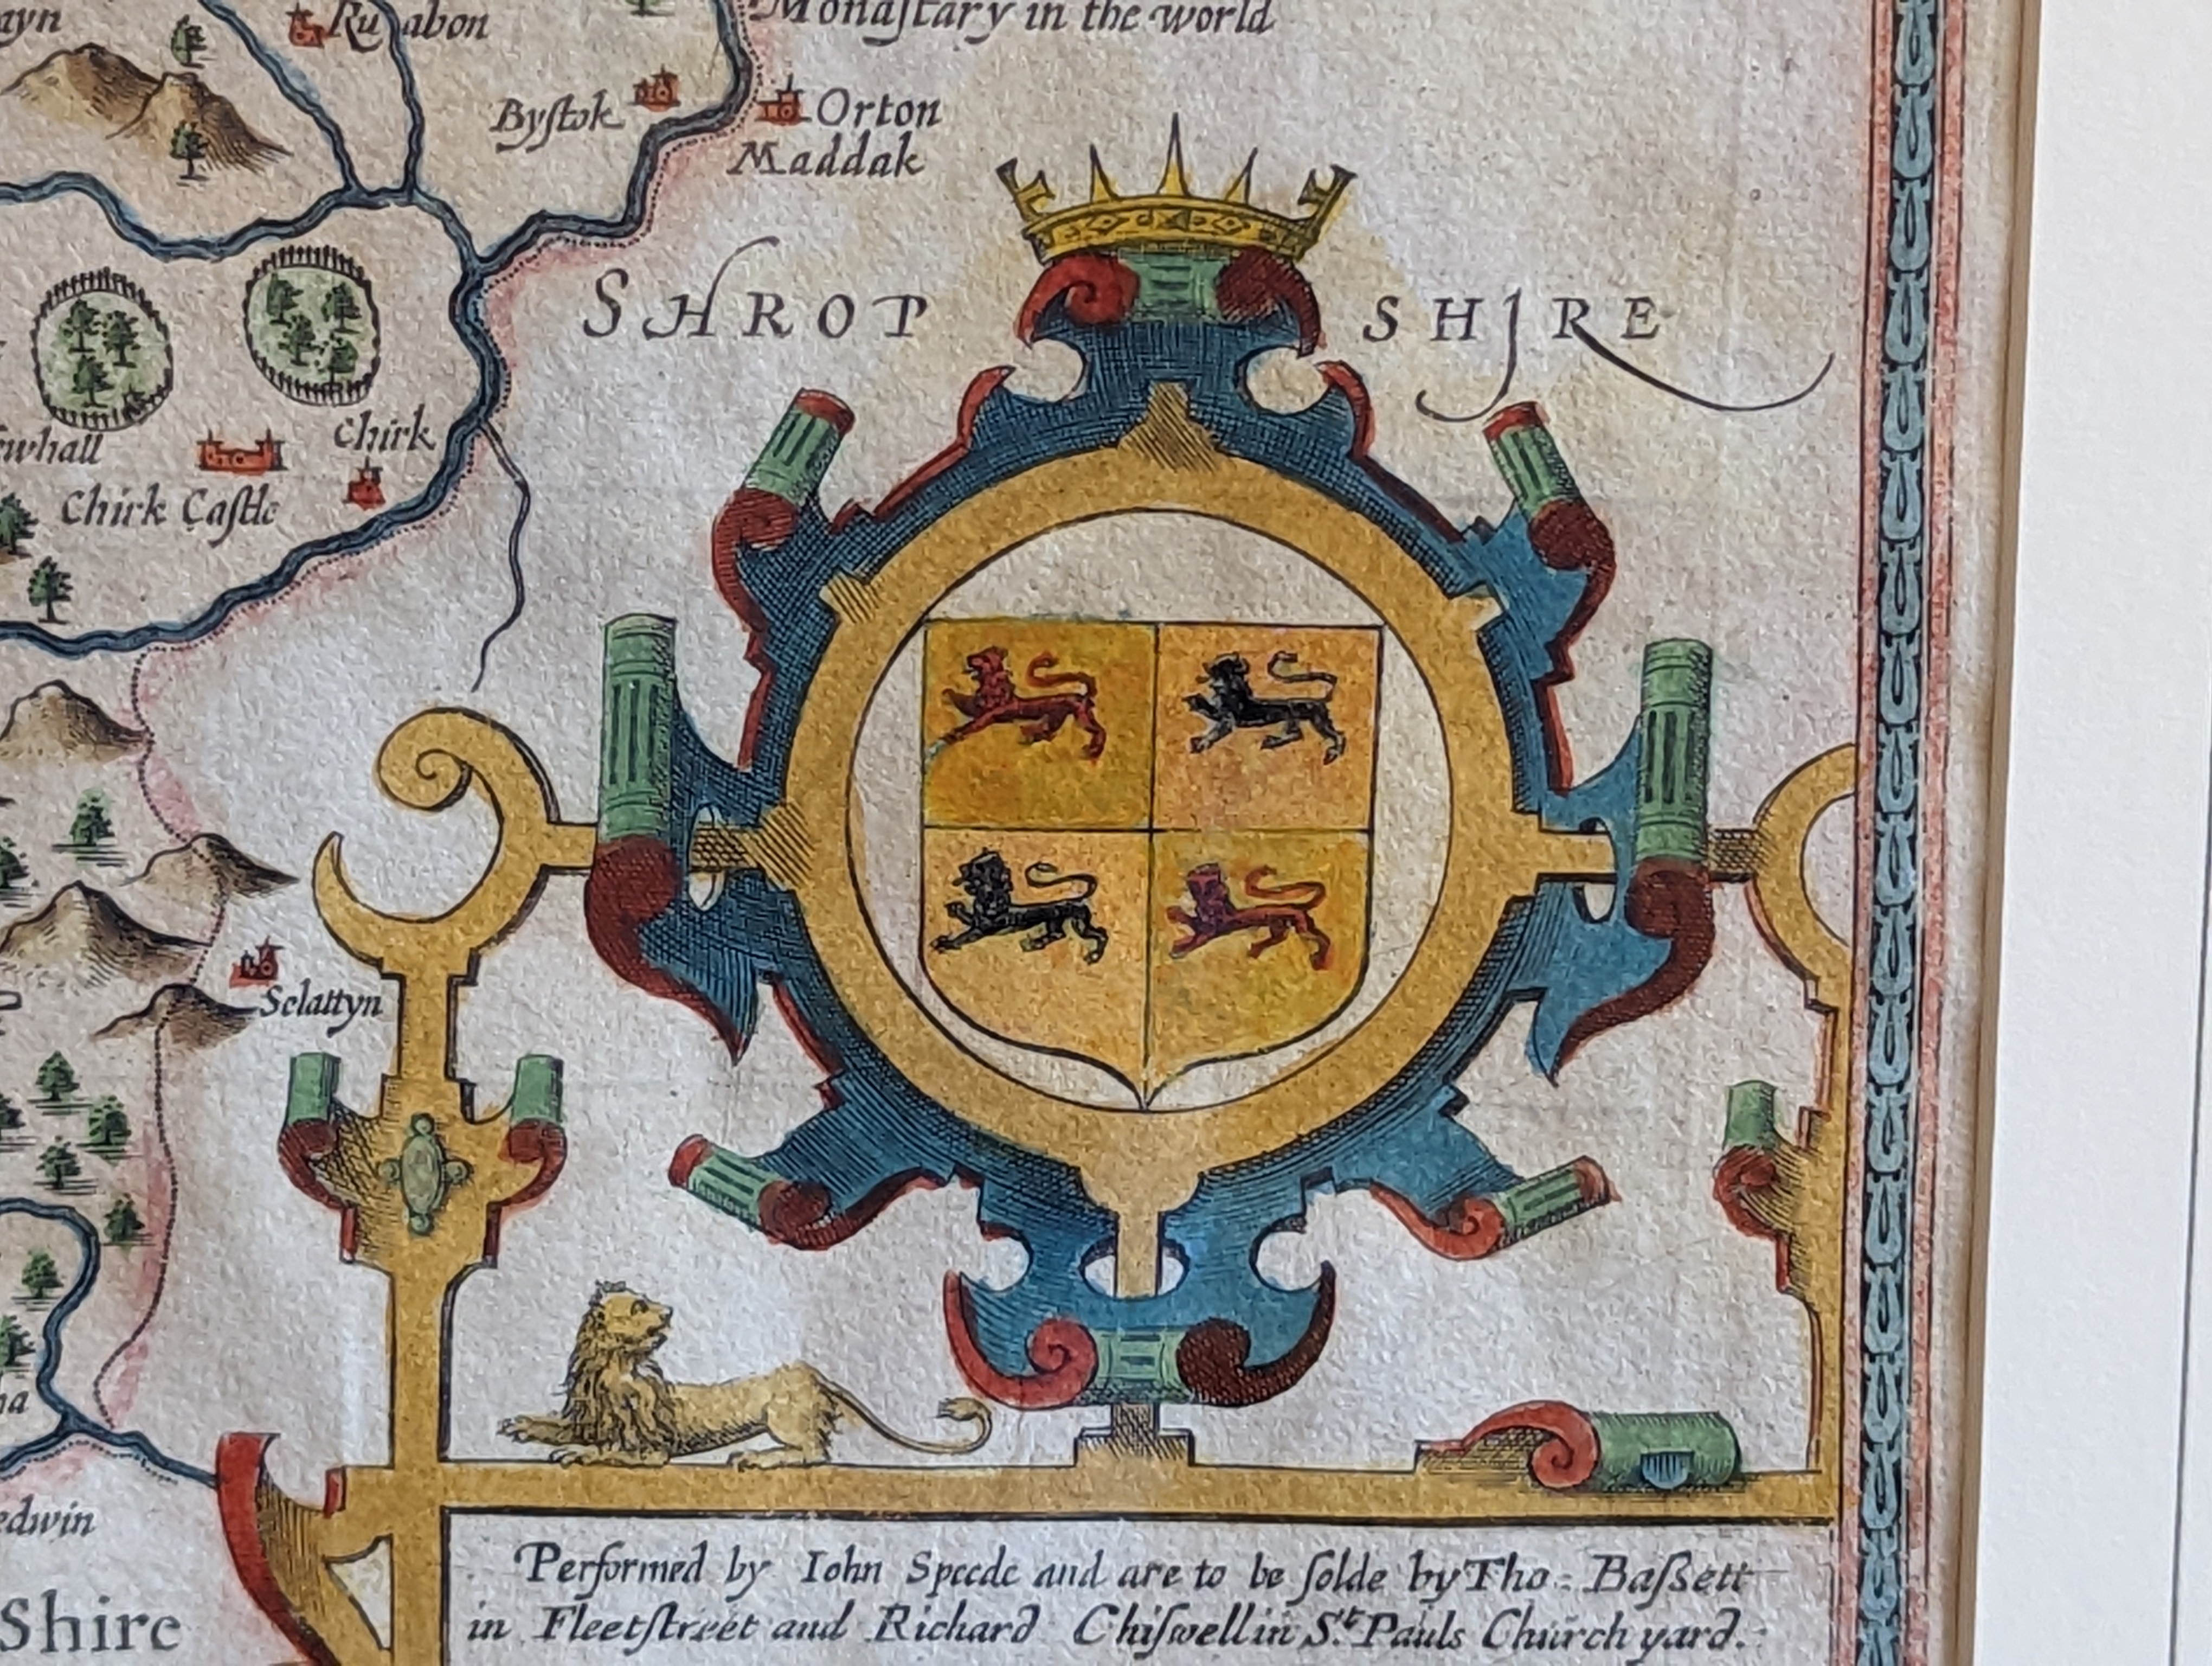 Ruabon
Monaſtary in the world
Byſtok
Orton
Maddak
SHROP SHIRE
Chirk
Chirk Caſtle
Selattyn
Shire
Performed by Iohn Speede and are to be ſolde by Tho: Baſsett
in Fleetſtreet and Richard Chiſwell in St. Pauls Church yard.